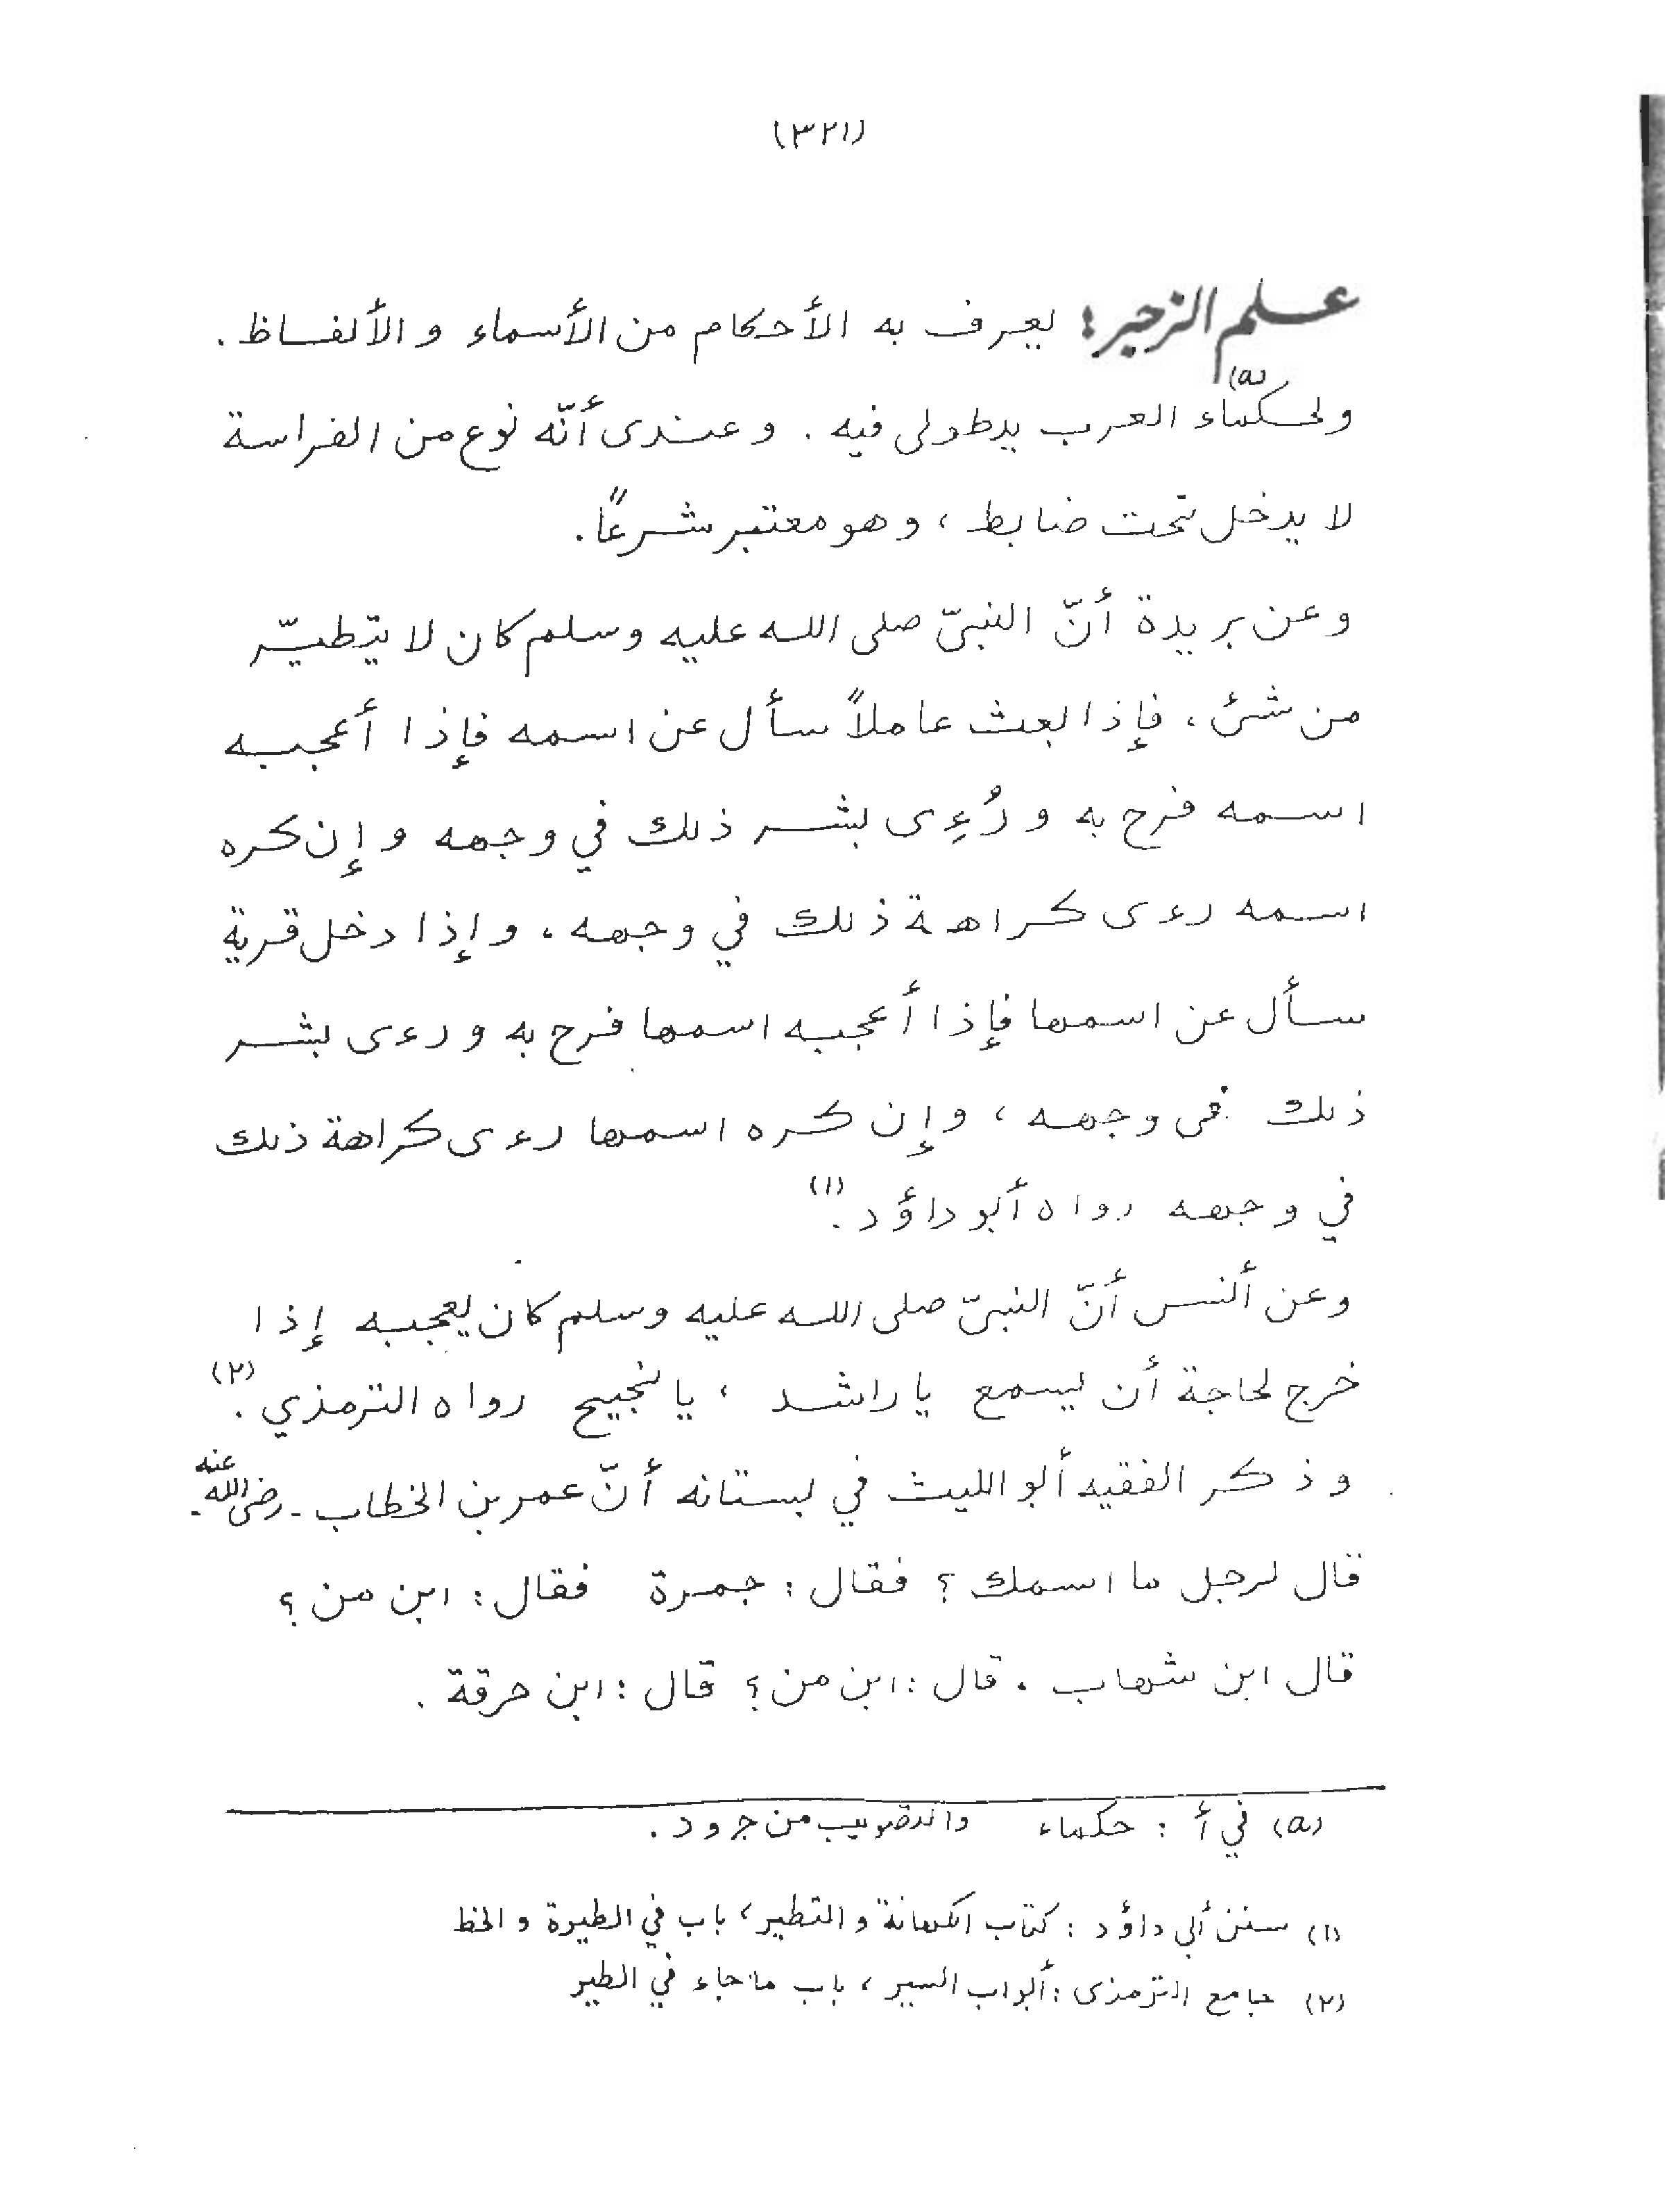 (٣٢١)
علم الزجر: يعرف به الأحكام من الأسماء و الألفاظ.
(a)
ولحكماء العرب يد طولى فيه. وعندى أنّه نوع من الفراسة
لا يدخل تحت ضابط، وهو معتبر شرعاً.
وعن بريدة أنّ النبىّ صلى الله عليه وسلم كان لا يتطيّر
من شئ، فإذا بعث عاملاً سأل عن اسمه فإذا أعجبه
اسمه فرح به و رُءِى بشر ذلك في وجهه و إن كره
اسمه رءى كراهة ذلك في وجهه، وإذا دخل قرية
سأل عن اسمها فإذا أعجبه اسمها فرح به و رءى بشر
ذلك فى وجهه، وإن كره اسمها رءى كراهة ذلك
في وجهه رواه أبو داؤد.(١)
وعن أنس أنّ النبىّ صلى الله عليه وسلم كان يعجبه إذا
خرج لحاجة أن يسمع يا راشد، يا نجيح رواه الترمذي.(٢)
وذكر الفقيه أبو الليث في بستانه أنّ عمر بن الخطاب - رضى الله عنه -
قال لرجل ما اسمك؟ فقال: جمرة فقال: ابن من؟
قال ابن شهاب. قال: ابن من؟ قال: ابن حرقة.
(a) في أ: حكماء والتصويب من ج و د.
(١) سنن أبي داؤد: كتاب الكهانة و التطير، باب في الطيرة و الخط
(٢) جامع الترمذى: أبواب السير، باب ما جاء في الطير